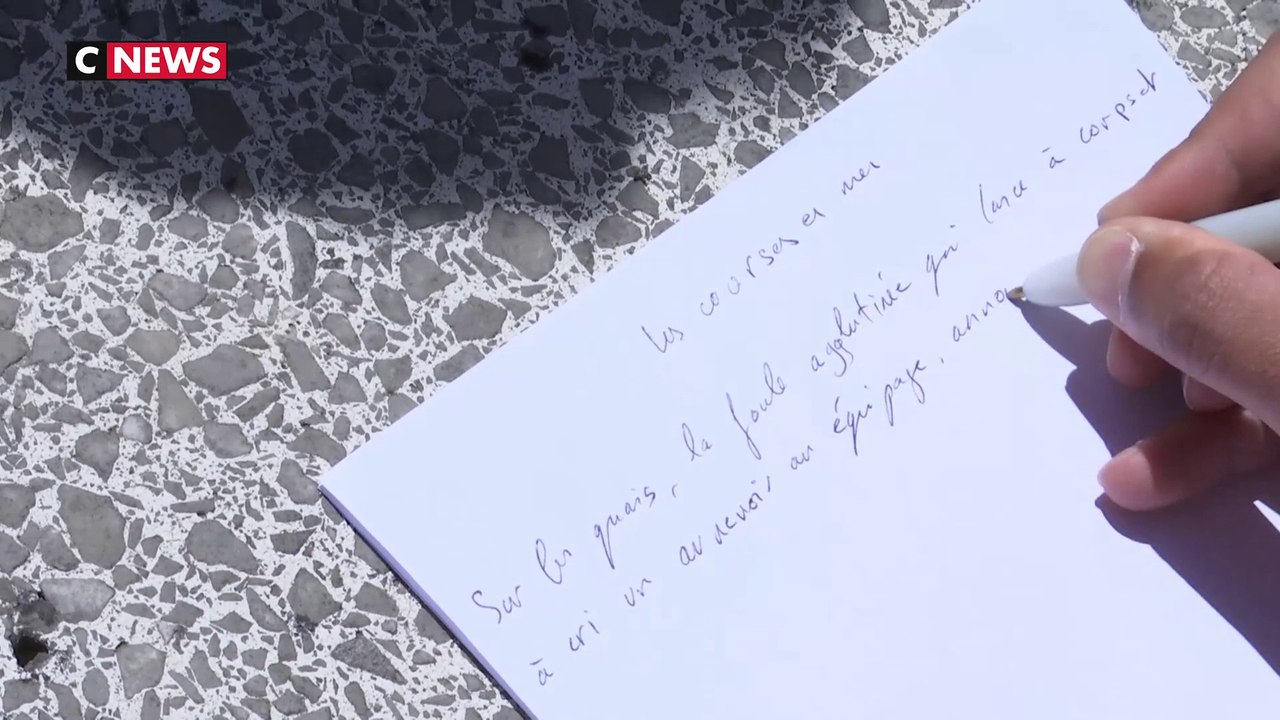 CNEWS
les courses en mer
Sur les quais, la foule agglutinée qui lance à corps et
à cri un au revoir au équipage, anno